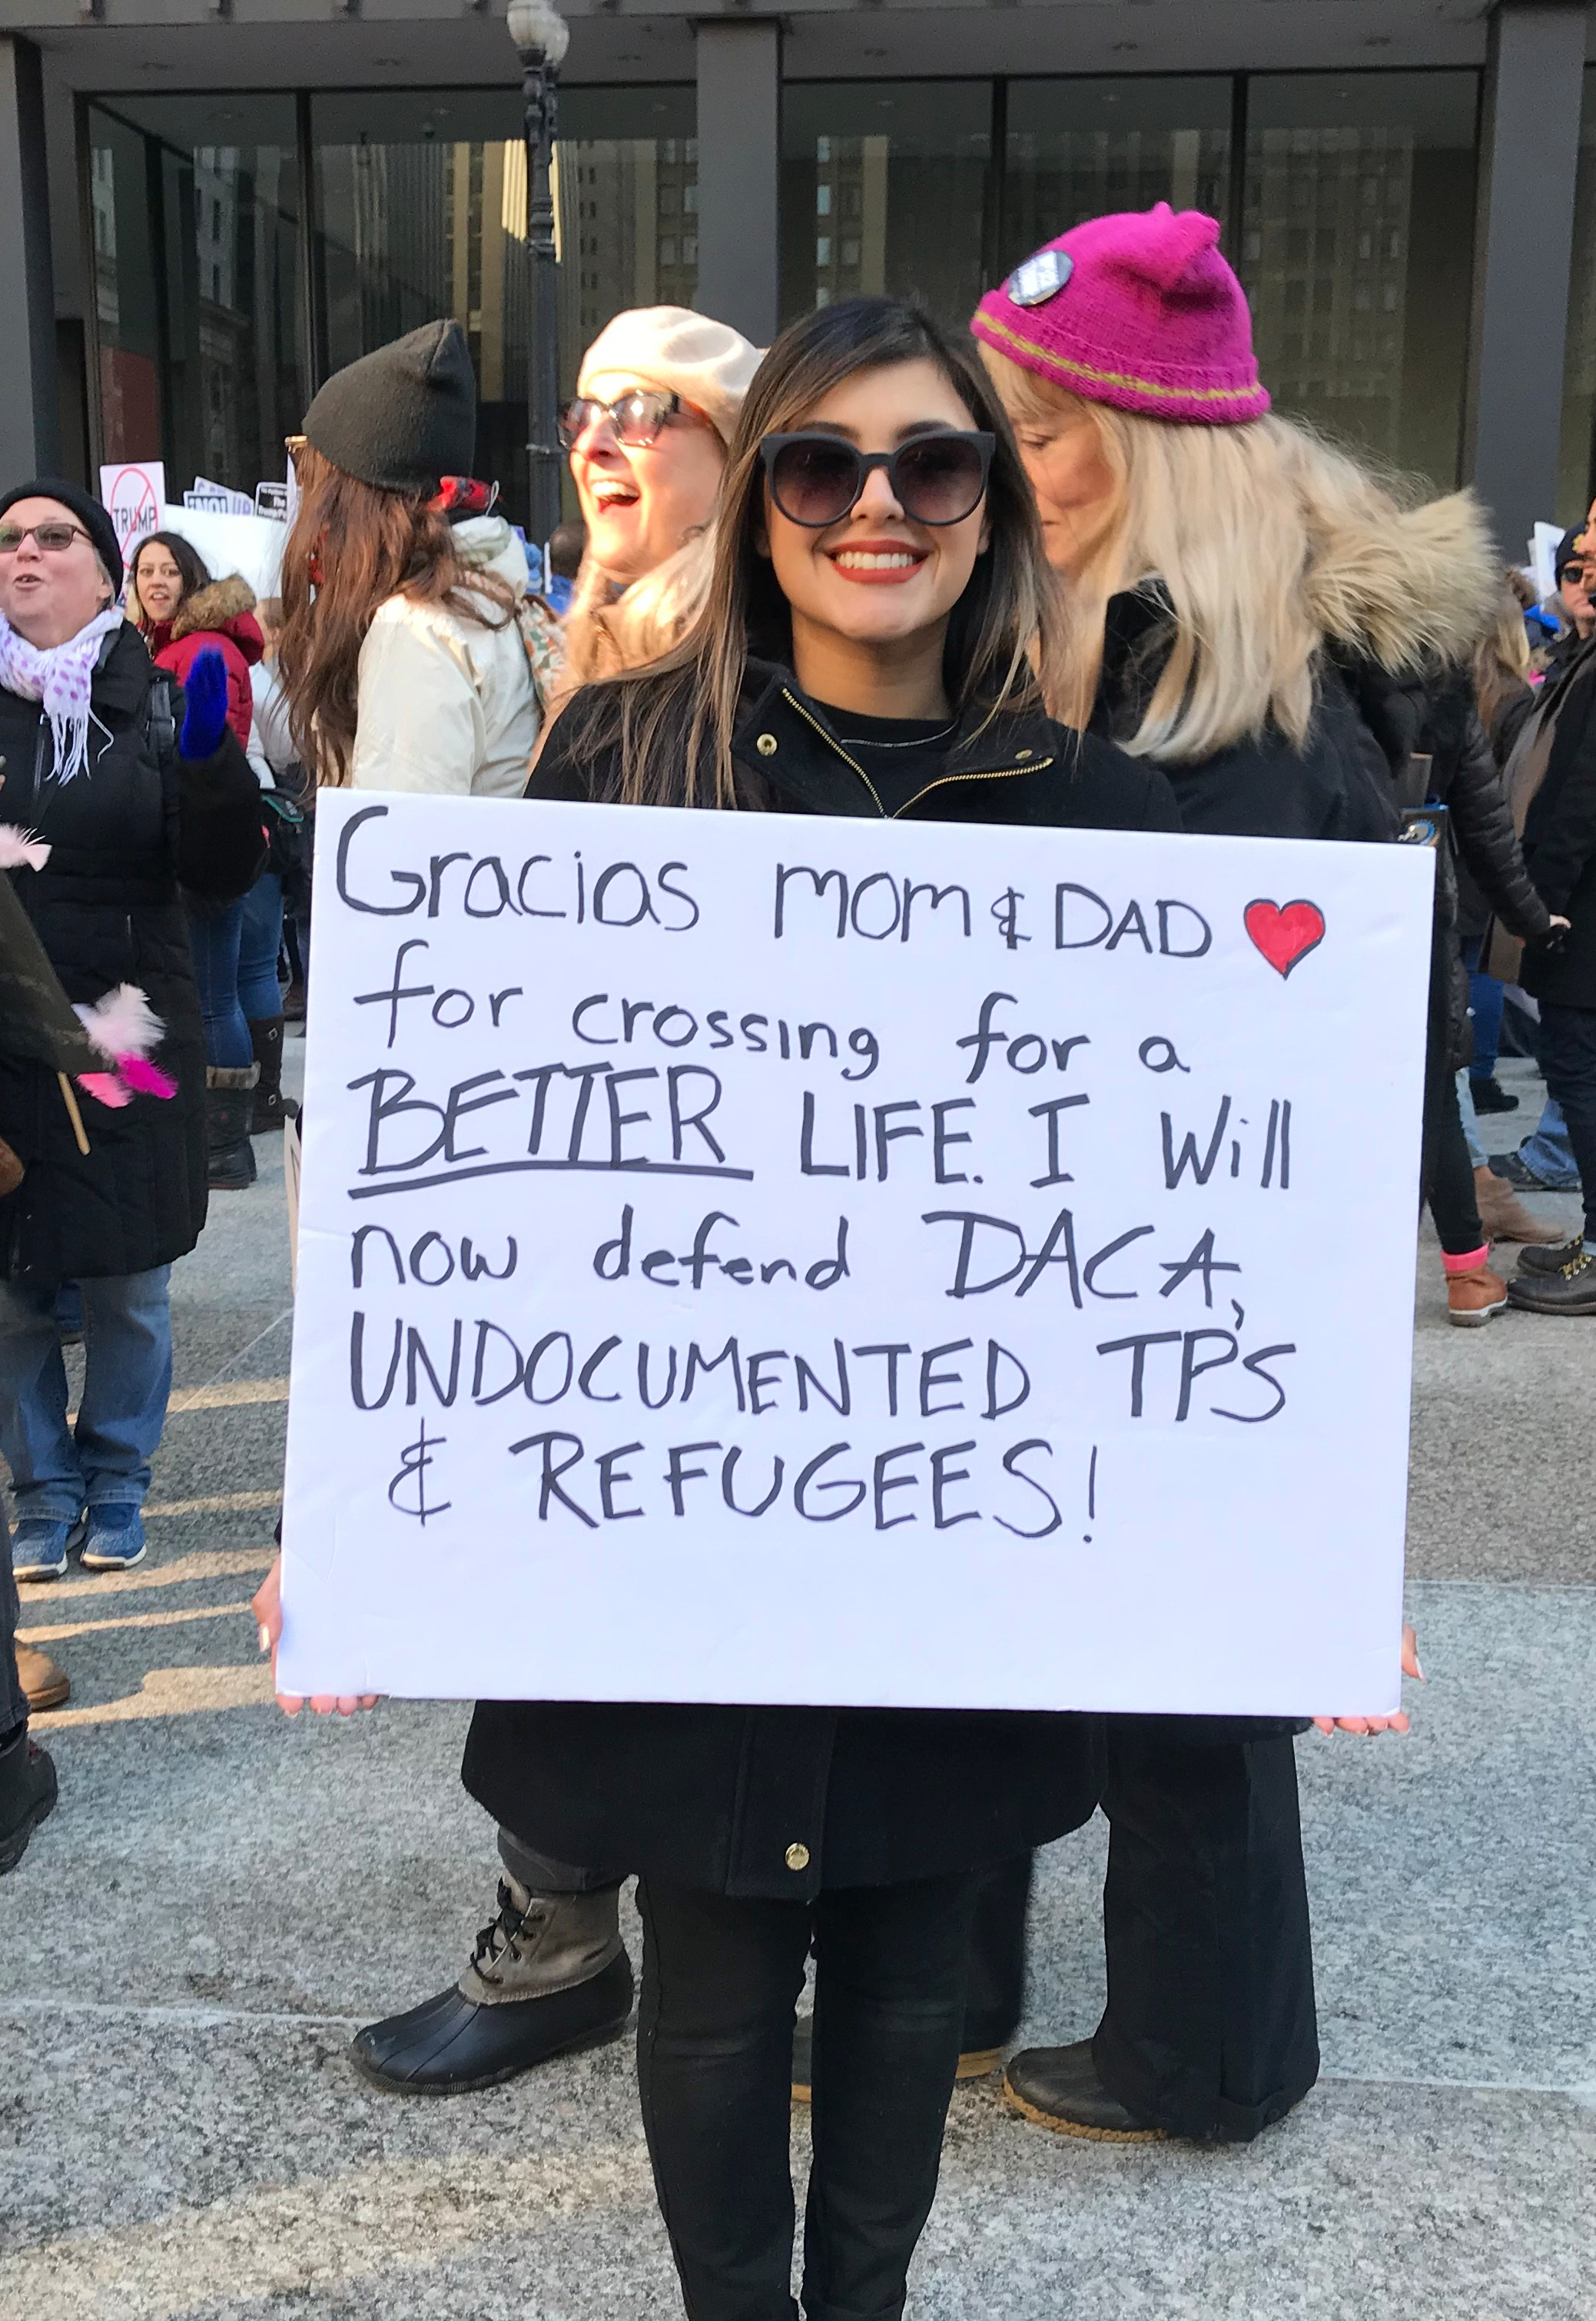 Gracias MOM & DAD ❤
for crossing for a
BETTER LIFE. I will
now defend DACA,
UNDOCUMENTED TPS
& REFUGEES!
TRUMP